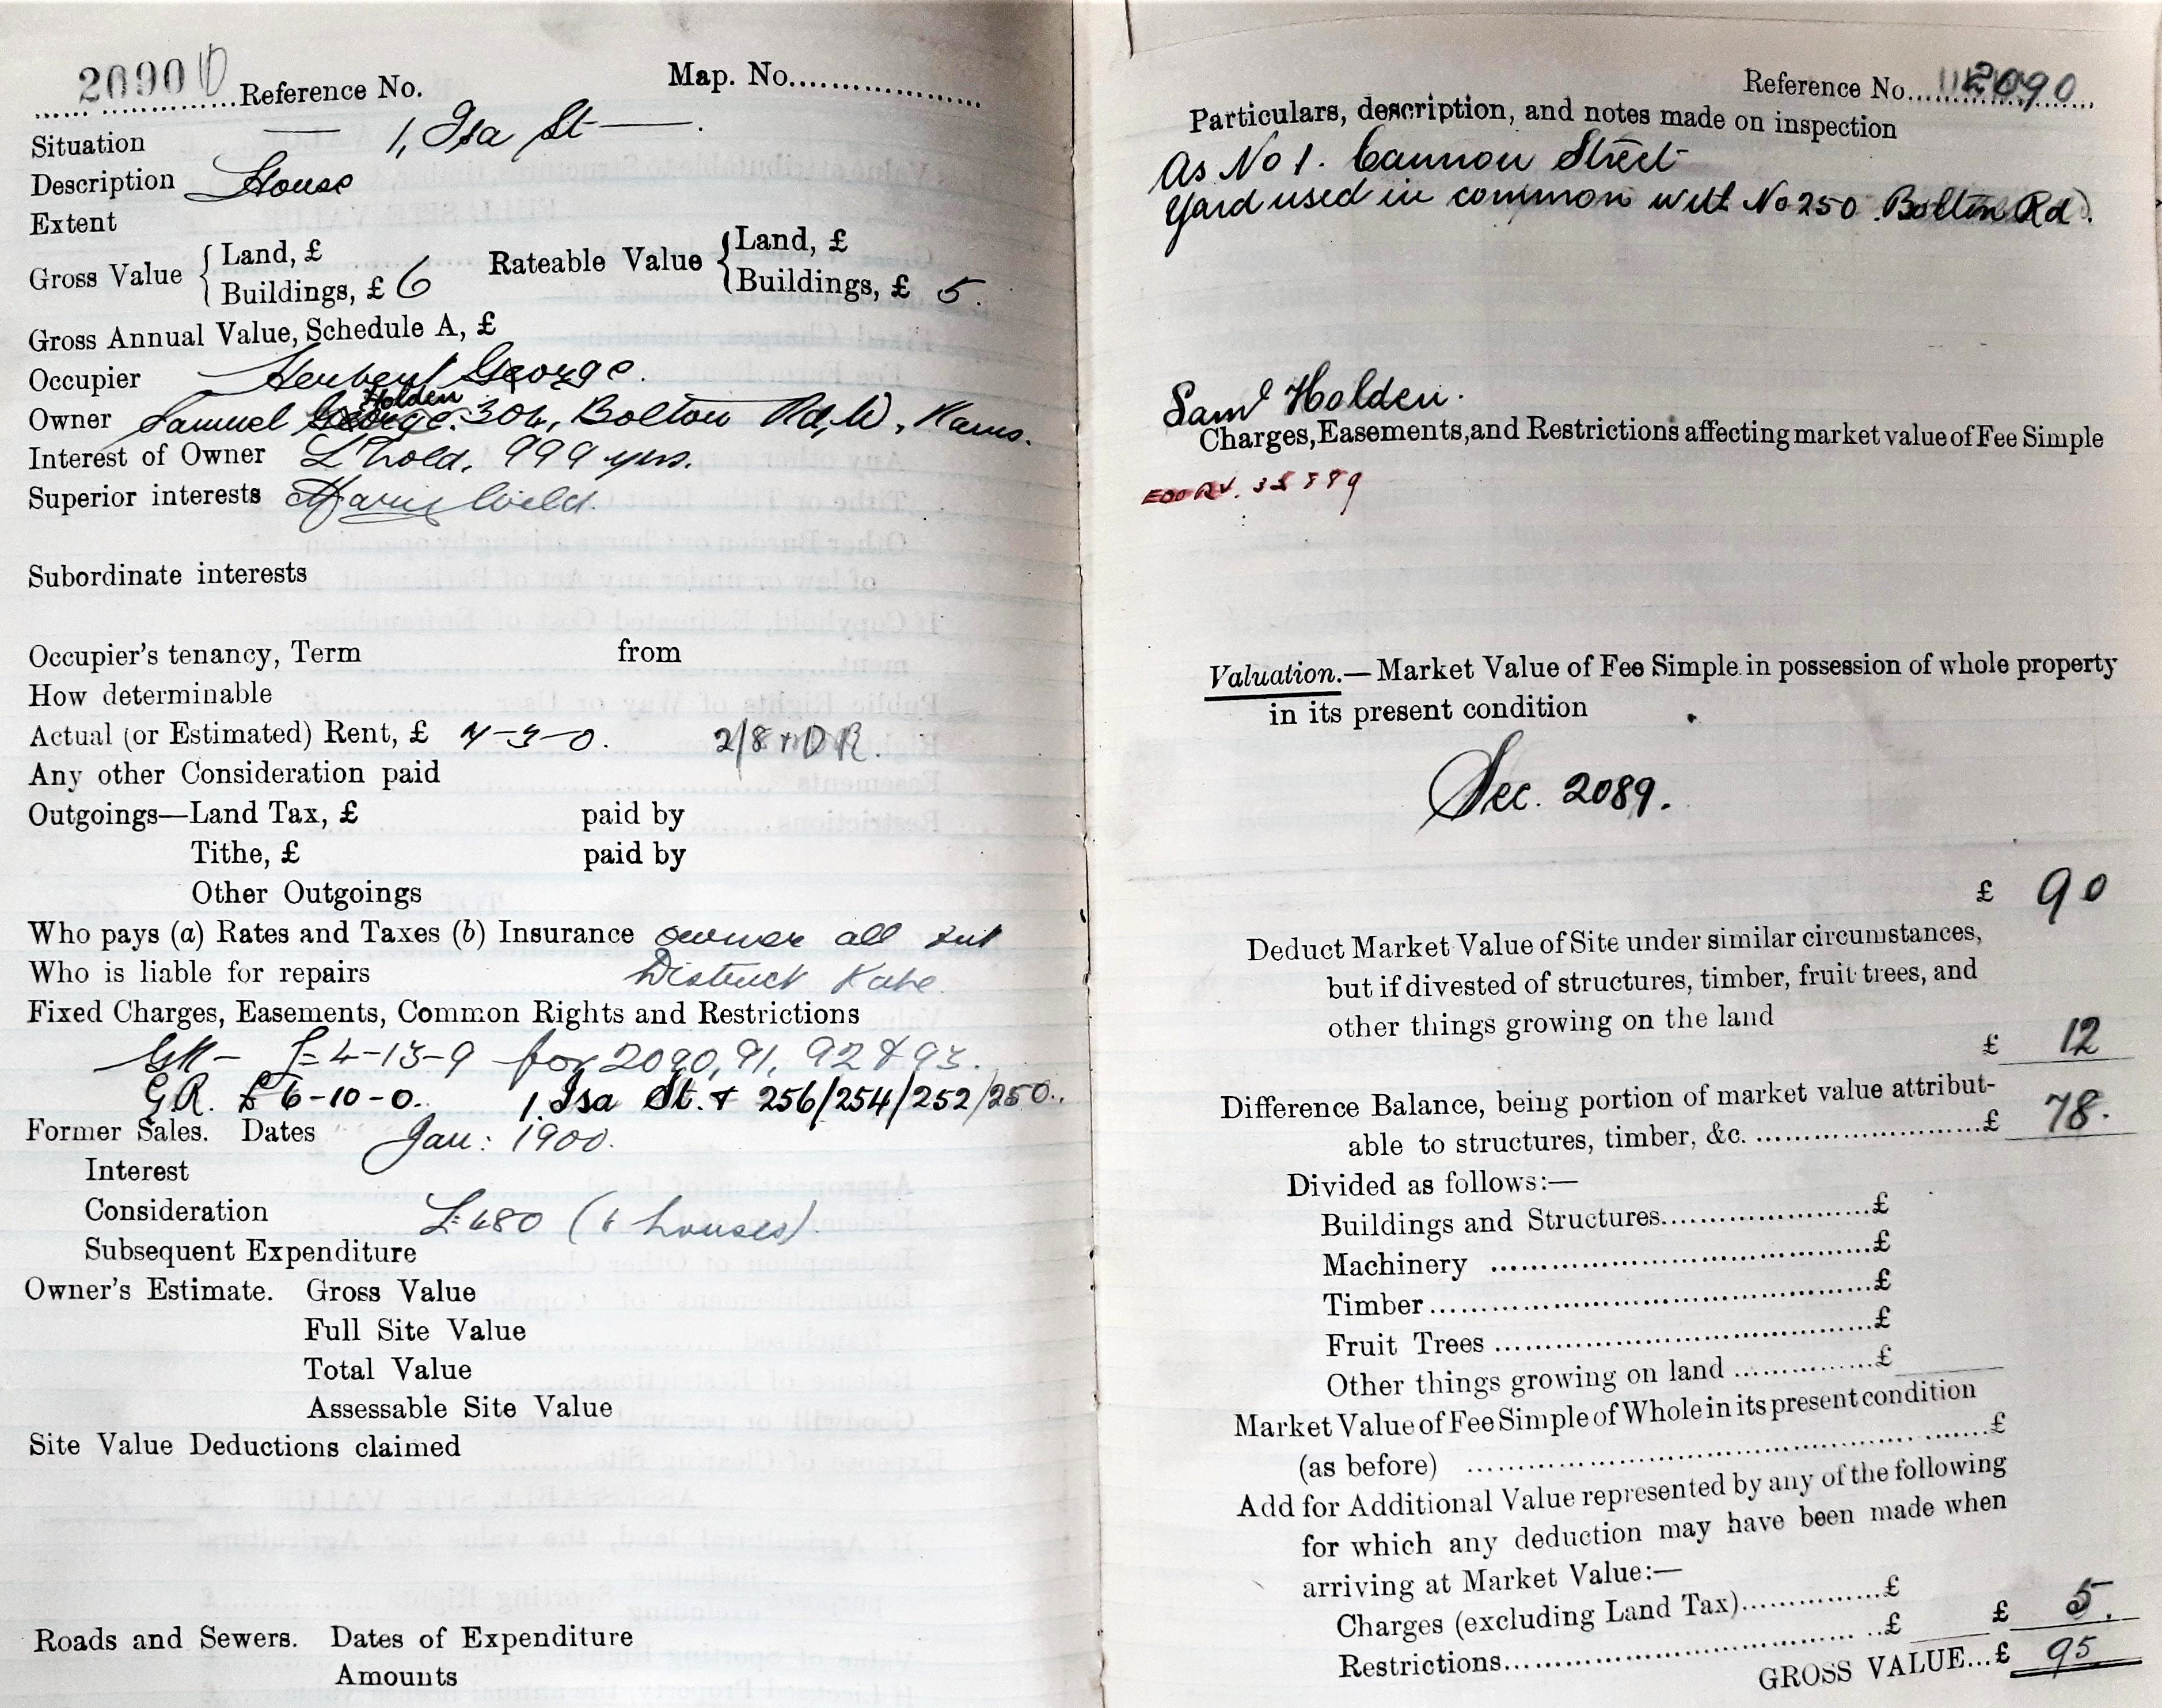 2090 D Reference No. Map. No.....................
Situation — 1, Isa St —.
Description House
Extent
Gross Value { Land, £
Buildings, £ 6
Rateable Value { Land, £
Buildings, £ 5.
Gross Annual Value, Schedule A, £
Occupier Herbert George.
Holden
Owner Samuel George. 304, Bolton Rd, W,
Interest of Owner L'hold, 999 yrs.
Superior interests
Subordinate interests
Occupier's tenancy, Term from
How determinable
Actual (or Estimated) Rent, £ 4-3-0. 2/8 + D R.
Any other Consideration paid
Outgoings—Land Tax, £ paid by
Tithe, £ paid by
Other Outgoings
Who pays (a) Rates and Taxes (b) Insurance owner all but
Who is liable for repairs District Rate.
Fixed Charges, Easements, Common Rights and Restrictions
GR — £4-13-9 for 2090, 91, 92 & 93.
G.R. £6-10-0. 1. Isa St. + 256/254/252/250..
Former Sales. Dates Jan: 1900.
Interest
Consideration £480 (6 houses).
Subsequent Expenditure
Owner's Estimate. Gross Value
Full Site Value
Total Value
Assessable Site Value
Site Value Deductions claimed
Roads and Sewers. Dates of Expenditure
Amounts
Reference No. 2090
Particulars, description, and notes made on inspection
As No 1. Cannon Street
Yard used in common with No 250. Bolton Rd.
Saml Holden.
Charges, Easements, and Restrictions affecting market value of Fee Simple
Valuation.—Market Value of Fee Simple in possession of whole property
in its present condition
See. 2089.
£ 90
Deduct Market Value of Site under similar circumstances,
but if divested of structures, timber, fruit trees, and
other things growing on the land
£ 12
Difference Balance, being portion of market value attribut-
able to structures, timber, &c. ........................£ 78.
Divided as follows:—
Buildings and Structures.......................£
Machinery .............................................£
Timber...................................................£
Fruit Trees ............................................£
Other things growing on land ...............£
Market Value of Fee Simple of Whole in its present condition
(as before) ........................................................£
Add for Additional Value represented by any of the following
for which any deduction may have been made when
arriving at Market Value:—
Charges (excluding Land Tax)................£
Restrictions.............................................£ £ 5.
GROSS VALUE...£ 95